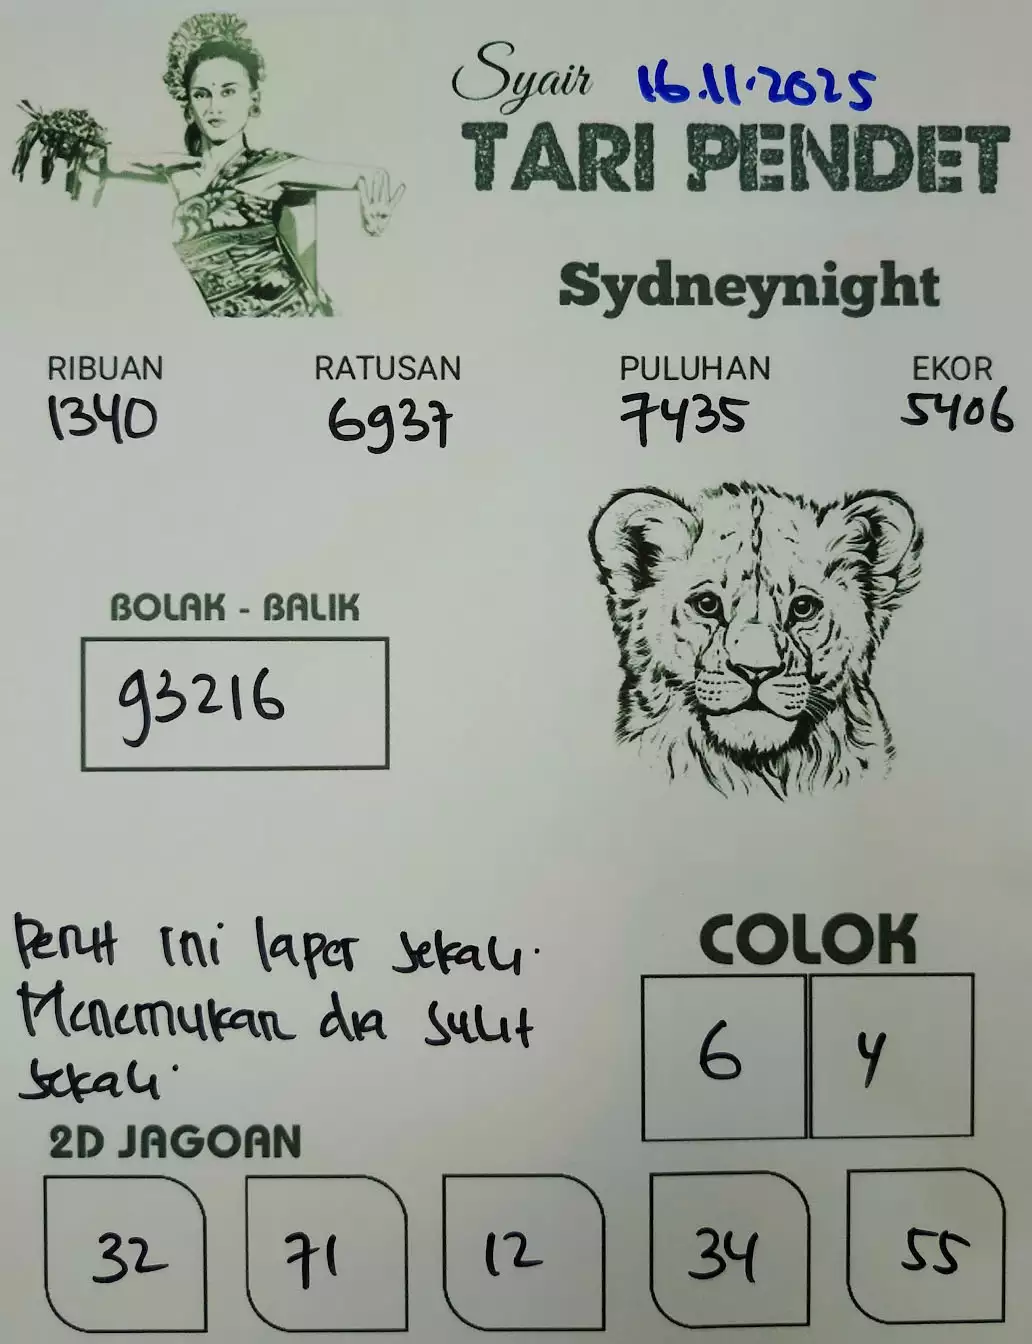 Syair 16.11.2025
TARI PENDET
Sydneynight
RIBUAN RATUSAN PULUHAN EKOR
1340 6937 7435 5406
BOLAK - BALIK
93216
Perut ini laper sekali.
Menemukan dia sulit
sekali.
COLOK
6 4
2D JAGOAN
32 71 12 34 55